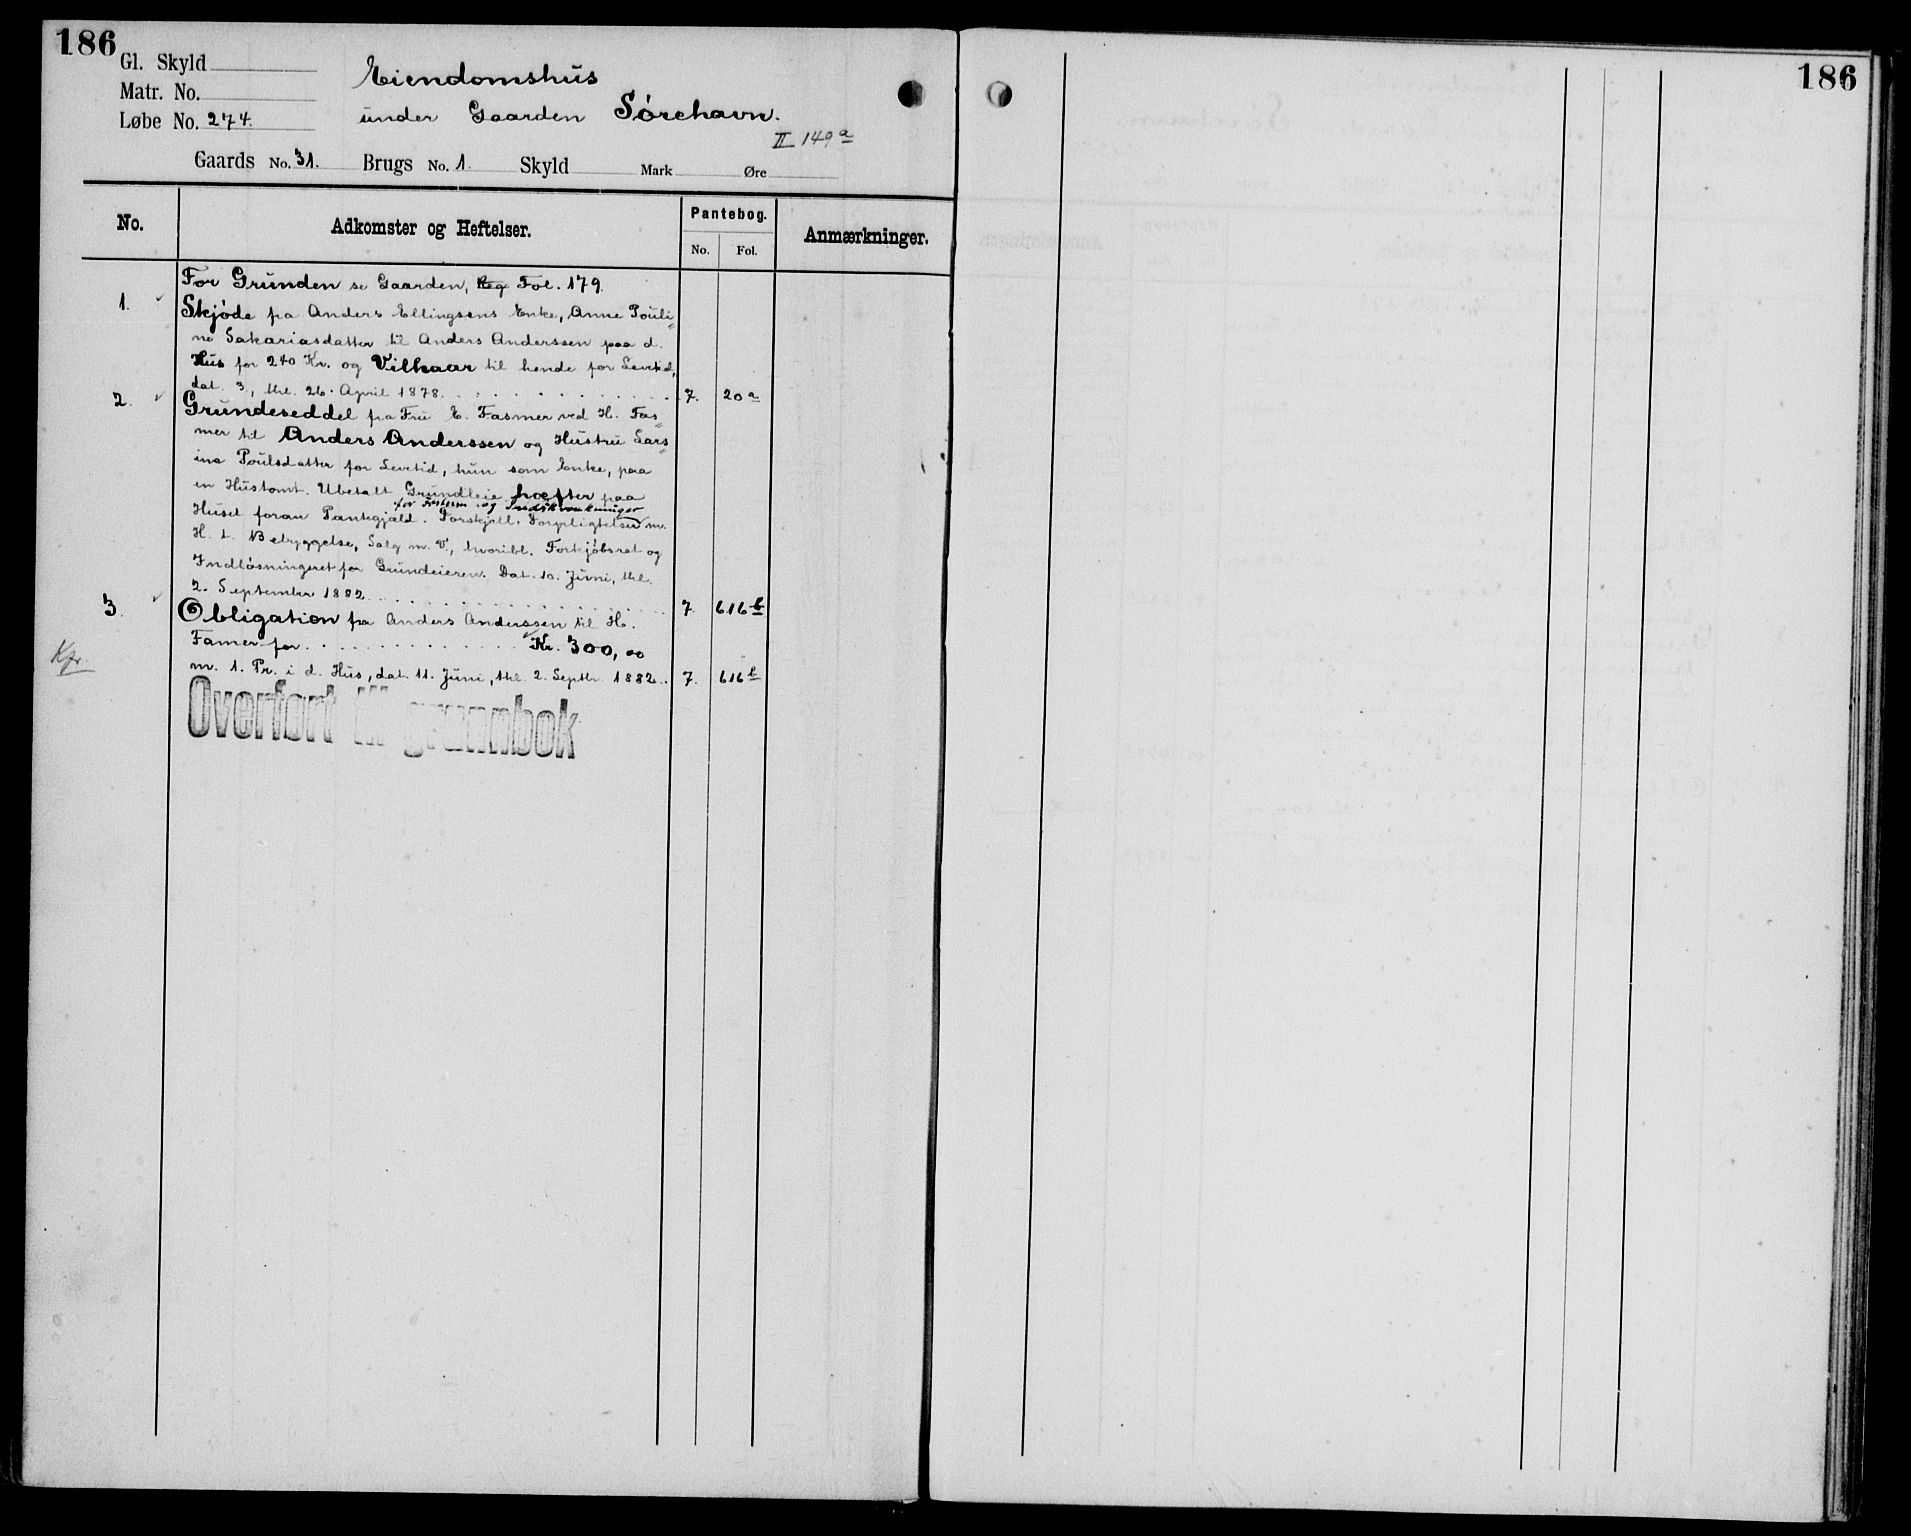 186
Gl. Skyld
Matr. No.
Løbe No. 274.
Eiendomshus
under Gaarden Sørehavn.
II 149 a
Gaards No. 31. Brugs No. 1. Skyld Mark Øre
No. Adkomster og Heftelser. Pantebog. No. Fol. Anmærkninger.
For Grunden se Gaarden, Fol. 179.
1. Skjøde fra Anders Ellingsens Enke, Anne Pouli=
ne Sakariasdatter til Anders Anderssen paa d.
Hus for 240 Kr. og Vilkaar til hende for Levetid,
dat. 3, thl. 26. April 1878. 7. 20 a
2. Grundeseddel fra Fru E. Fasmer ved H. Fas=
mer til Anders Anderssen og Hustru Lars=
ine Poulsdatter for Levetid, hun som Enke, paa
en Hustomt. Ubetalt Grundleie hæfter paa
Huset foran Pantegjæld. Forskjell. Forpligtelser m.
H. t. Bebyggelse, Salg m. V., hvoribl. Forkjøbsret og
Indløsningsret for Grundeieren. Dat. 10. Juni, thl.
2. September 1882. 7. 616 b
3. Obligation fra Anders Anderssen til H.
Famer for Kr. 300,00
m. 1. Pr. i d. Hus, dat. 11. Juni, thl. 2. Septbr. 1882. 7. 616 b
Kfr.
Overført til grunnbok
186